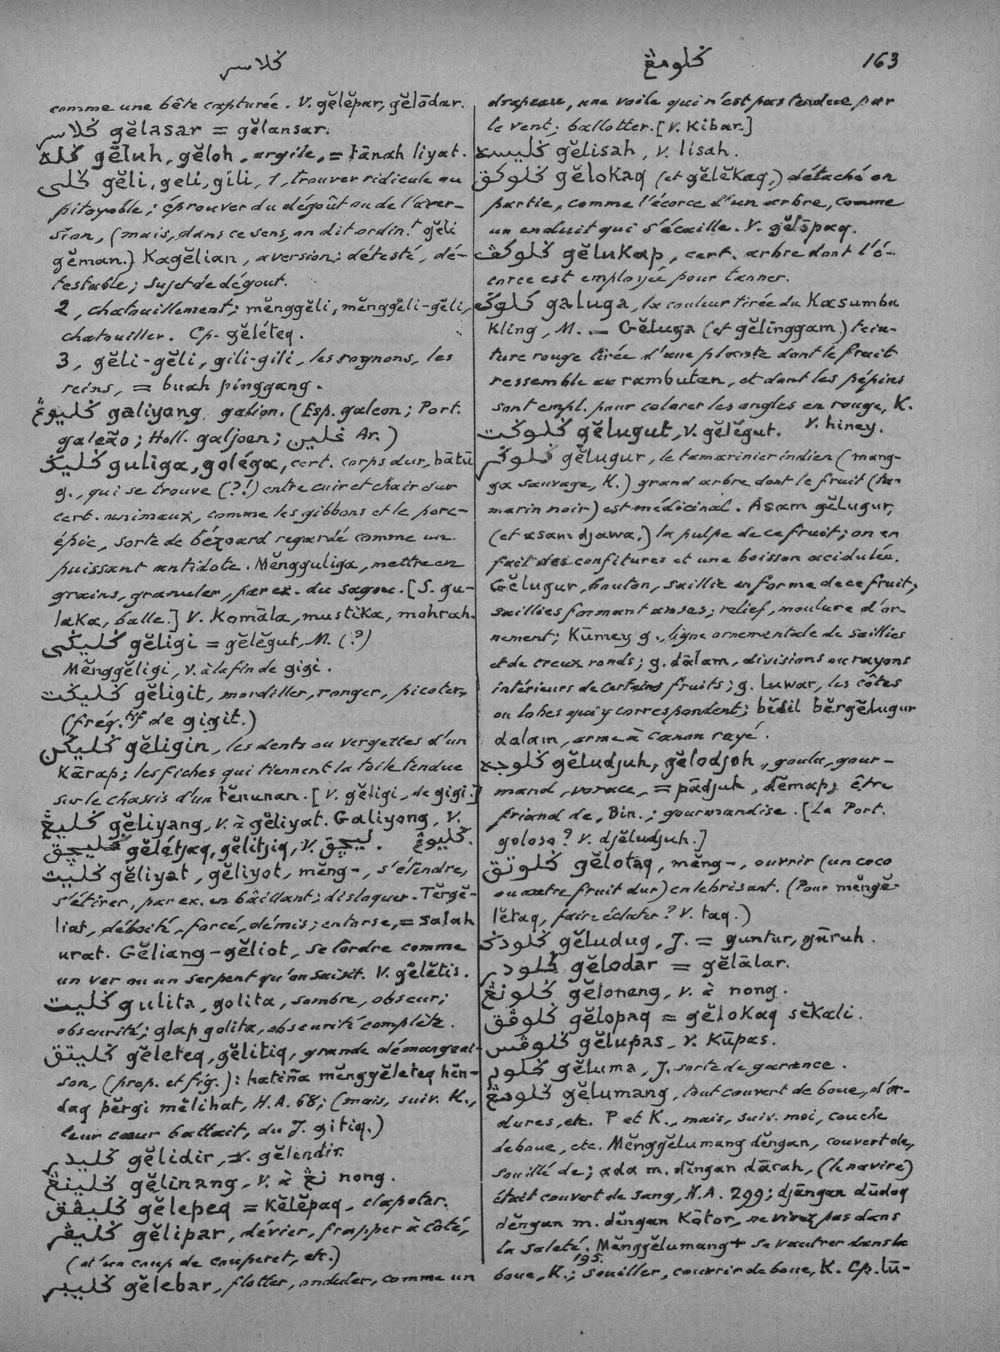 ݢلاسر
ݢلومڠ
163
comme une bête capturée. V. gĕlĕpar, gĕlōdar.
ݢلاسر gĕlasar = gĕlansar.
ݢله gĕluh, gĕloh, argile, = tānah liyat.
ݢلي gĕli, geli, gili, 1, trouver ridicule ou
pitoyable; éprouver du dégoût ou de l'aver-
sion, (mais, dans ce sens, on dit ordin.t gĕli
gĕman.) Kagĕlian, aversion; détesté, dé-
testable; sujet de dégout.
2, chatouillement; mĕnggĕli, mĕnggĕli-gĕli,
chatouiller. Cp. gĕléteq.
3, gĕli-gĕli, gili-gili, les rognons, les
reins, = buah pinggang.
ݢليوڠ galiyong, galion. (Esp. galeon; Port.
galeão; Holl. galjoen; غلين Ar.)
ݢليݢ guliga, goléga, cert. corps dur, bātū
g., qui se trouve (?!) entre cuir et chair sur
cert. animaux, comme les gibbons et le porc-
épic, sorte de bézoard regardé comme un
puissant antidote. Mĕngguliga, mettre en
grains, granuler, par ex. du sagou. [S. gu-
laKa, balle.] V. Komāla, mustiKa, mohrah.
ݢليݢي gĕligi = gĕlĕgut, M. (?)
Mĕnggĕligi, V. à la fin de gigi.
ݢليݢت gĕligit, mordiller, ronger, picoter,
(fréq.tif de gigit.)
ݢليݢن gĕligin, les dents ou vergettes d'un
Kārap; les fiches qui tiennent la toile tendue
sur le chassis d'un tĕnunan. [V. gĕligi, de gigi.]
ݢليڠ gĕliyang, V. à gĕliyat. Galiyong, V.
ݢليوڠ.
ݢليچق gĕlétjaq, gĕlitjiq, V. ليچق.
ݢليت gĕliyat, gĕliyot, mĕng-, s'étendre,
s'étirer, par ex. en bâillant; disloquer. Tĕrgĕ-
liat, déboité, forcé, démis; entorse, = salah
urat. Gĕliang-gĕliot, se tordre comme
un ver ou un serpent qu'on saisit. V. gĕlĕtis.
ݢليت gulita, golita, sombre, obscur;
obscurité; glap golita, obscurité complète.
ݢليتق gĕleteq, gĕlitiq, grande démangeai-
son, (prop. et fig.): hatiña mĕnggĕleteq hĕn-
daq pĕrgi mĕlihat, H.A. 68; (mais, suiv. K.,
leur cœur battait, du J. gitiq.)
ݢليدير gĕlidir, V. gĕlendir.
ݢلينڠ gĕlinang, V. à نڠ nong.
ݢليڤق gĕlepeq = Kĕlĕpaq, clapoter.
ݢليڤر gĕlipar, dévier, frapper à côté,
(d'un coup de couperet, etc.)
ݢليبر gĕlebar, flotter, onduler, comme un
drapeau, une voile qui n'est pas tendue par
le vent; ballotter. [V. Kibar.]
ݢليسه gĕlisah, V. lisah.
ݢلوكق gĕloKaq (et gĕlĕKaq,) détaché en
partie, comme l'écorce d'un arbre, comme
un enduit qui s'écaille. V. gĕlōpaq.
ݢلوكڤ gĕluKap, cert. arbre dont l'é-
corce est employée pour tanner.
ݢلوݢ galuga, la couleur tirée du Kasumba
Kling, M. — Gĕluga (et gĕlinggam) tein-
ture rouge tirée d'une plante dont le fruit
ressemble au rambutan, et dont les pépins
sont empl. pour colorer les ongles en rouge, K.
V. hiney.
ݢلوݢت gĕlugut, V. gĕlĕgut.
ݢلوݢر gĕlugur, le tamarinier indien (mang-
ga sauvage, K.) grand arbre dont le fruit (ta-
marin noir) est médicinal. Asam gĕlugur,
(et asam djawa,) la pulpe de ce fruit; on en
fait des confitures et une boisson acidulée.
Gĕlugur, bouton, saillie en forme de ce fruit,
saillies formant anses; relief, moulure d'or-
nement; Kūmey g., ligne ornementale de saillies
et de creux ronds; g. dālam, divisions ou rayons
intérieurs de certains fruits; g. luwar, les côtes
ou lobes qui y correspondent; bĕdil bĕrgĕlugur
dalam, arme à canon rayé.
ݢلوجه gĕludjuh, gĕlodjoh, goulu, gour-
mand, vorace, = pādjuh, dĕmap; être
friand de, Bin.; gourmandise. [Le Port.
goloso? V. djĕludjuh.]
ݢلوتق gĕlotaq, mĕng-, ouvrir (un coco
ou autre fruit dur) en le brisant. (Pour mĕngĕ-
lĕtaq, faire éclater? V. taq.)
ݢلودݢ gĕludug, J. = guntur, gūruh.
ݢلودر gĕlodar = gĕlālar.
ݢلونڠ gĕloneng, V. à nong.
ݢلوڤق gĕlopaq = gĕloKaq sĕkali.
ݢلوڤس gĕlupas, V. Kūpas.
ݢلوم gĕluma, J. sorte de garance.
ݢلومڠ gĕlumang, tout couvert de boue, d'or-
dures, etc. P et K., mais, suiv. moi, couche
de boue, etc. Mĕnggĕlumang dĕngan, couvert de,
souillé de; ada m. dĕngan dārah, (le navire)
était couvert de sang, H.A. 299; djāngan dūdoq
dĕngan m. dĕngan Kōtor, ne vivez pas dans
la saleté, 195. Mĕnggĕlumang + se vautrer dans la
boue, K.; souiller, couvrir de boue, K. Cp. lū-